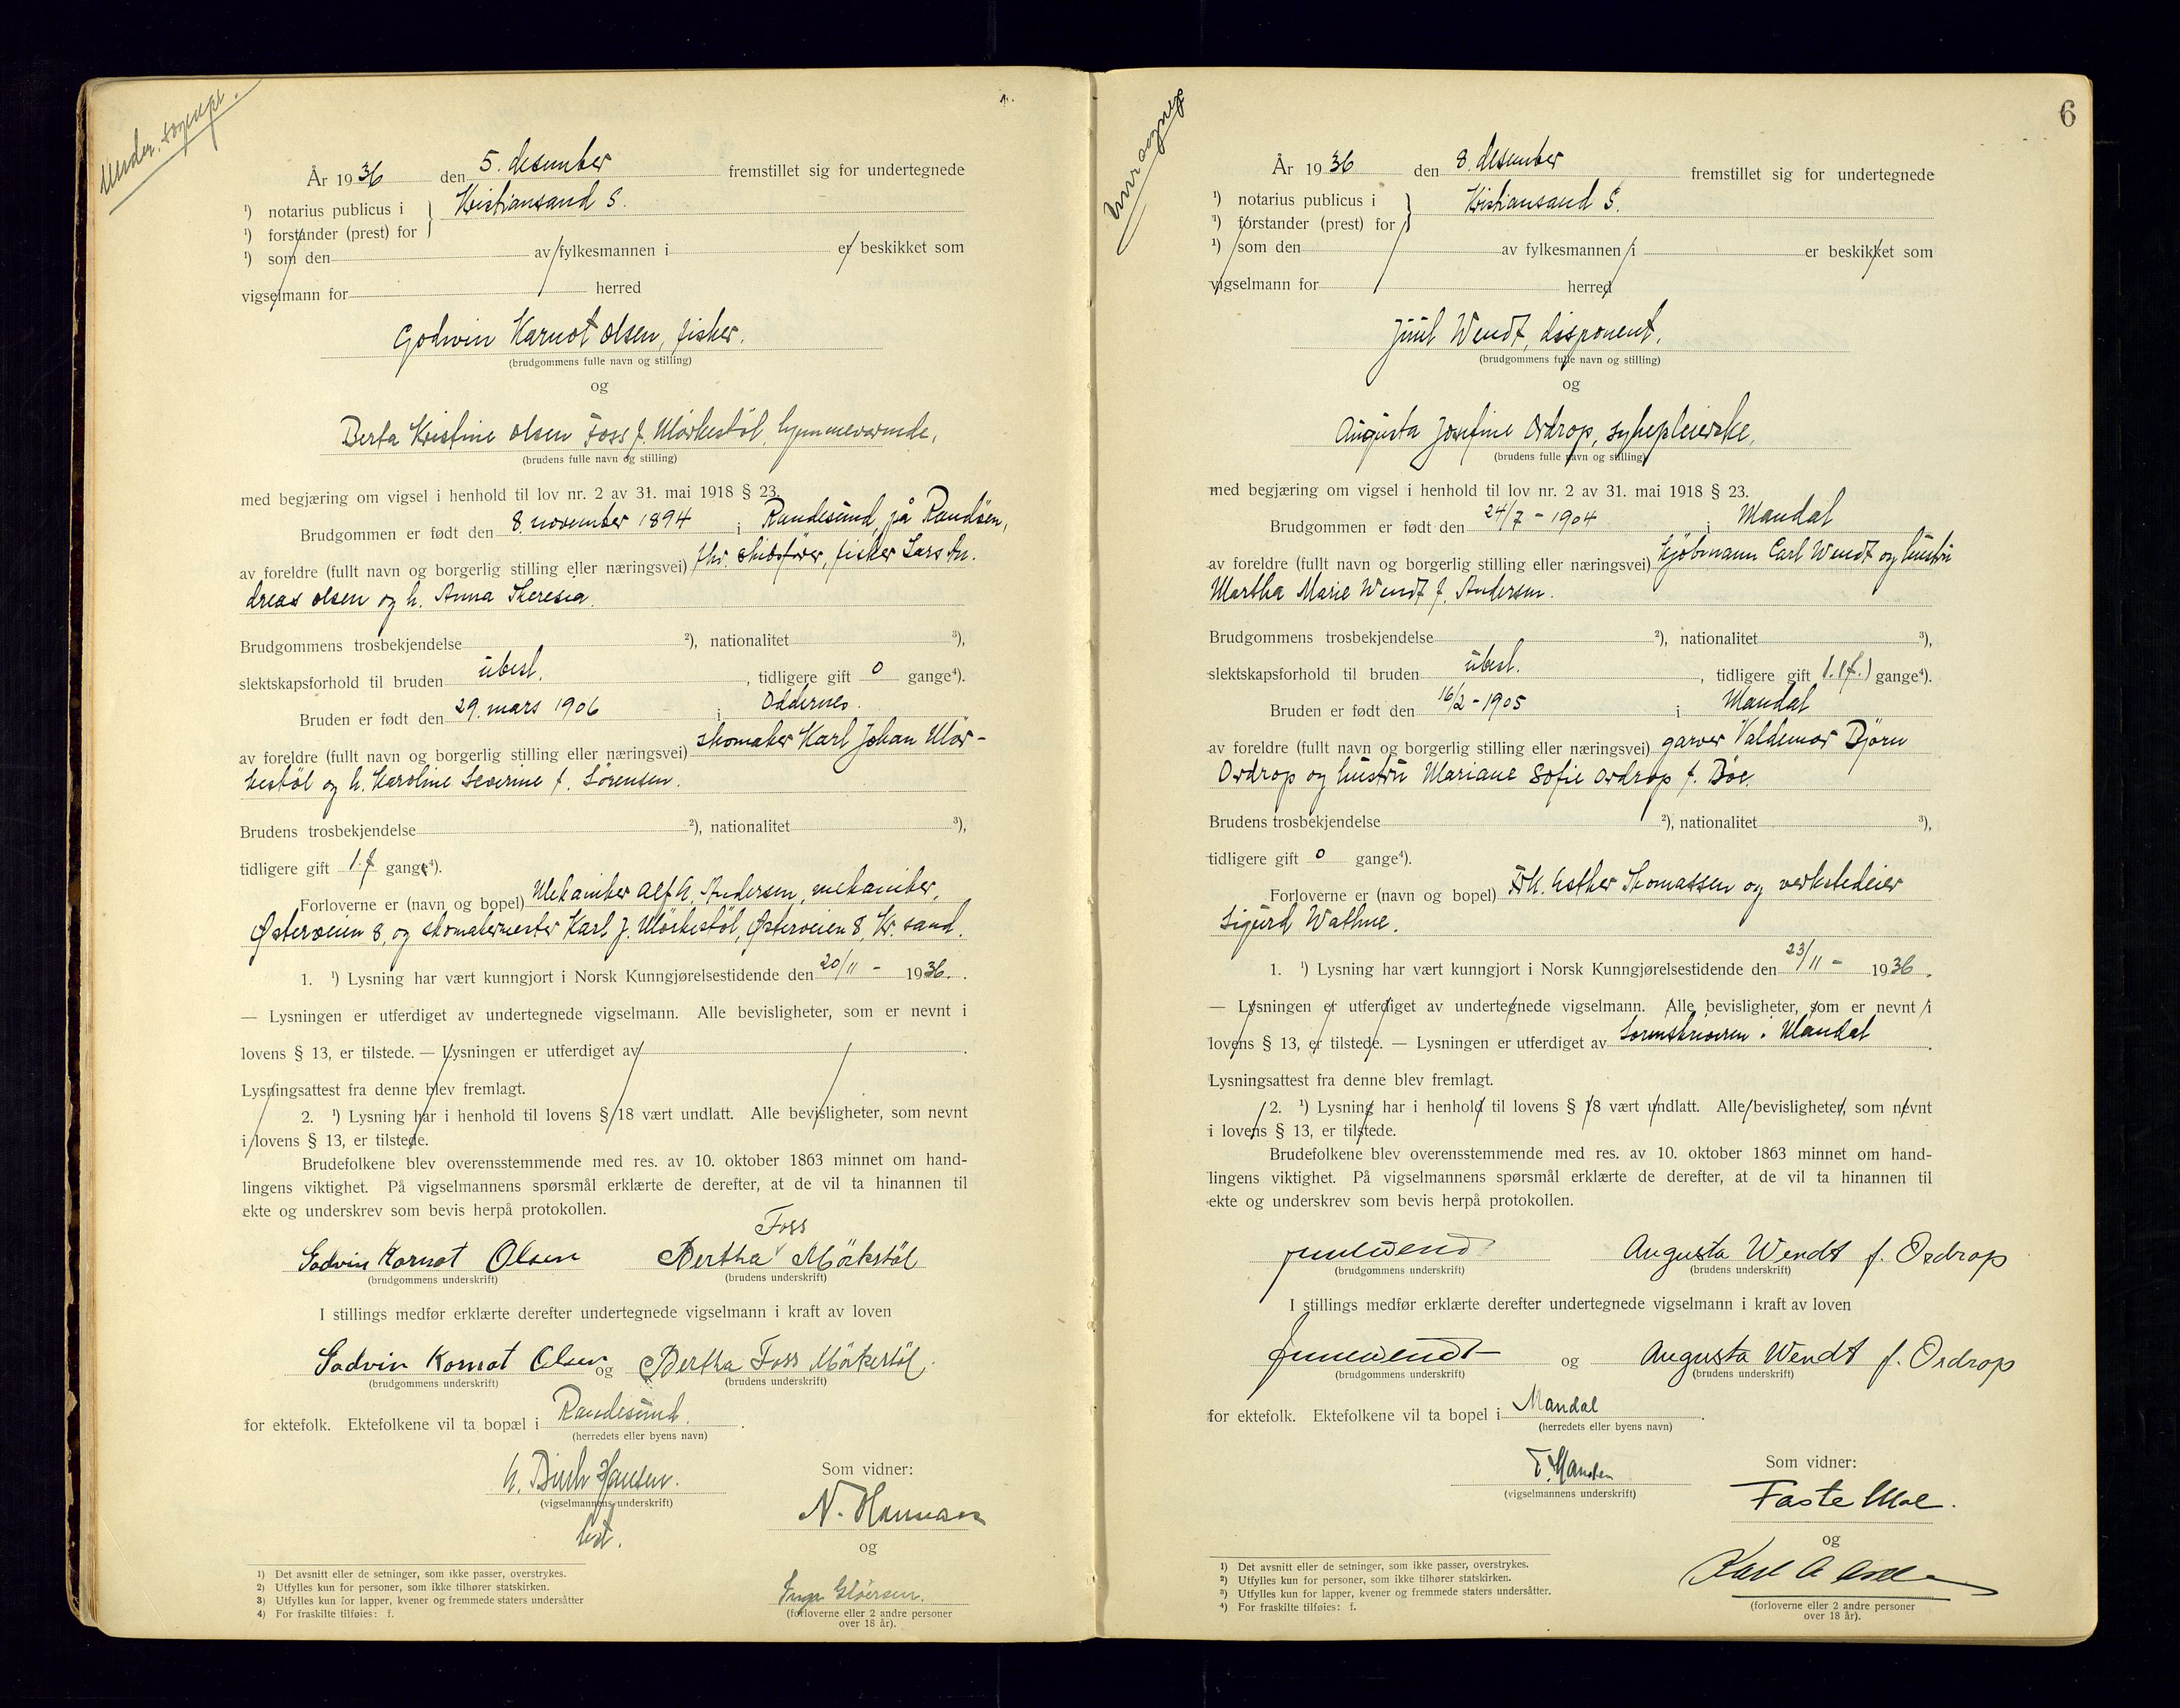 År 1936 den 5. desember fremstillet sig for undertegnede
¹) notarius publicus i } Kristiansand S.
¹) forstander (prest) for
¹) som den av fylkesmannen i er beskikket som
vigselmann for herred
Godwin Karnot Olsen, fisker.
(brudgommens fulle navn og stilling)
og
Berta Kristine Olsen Foss f. Mörkestöl, hjemmeværende,
(brudens fulle navn og stilling)
med begjæring om vigsel i henhold til lov nr. 2 av 31. mai 1918 § 23.
Brudgommen er født den 8. november 1894 i Randesund, på Randöen,
av foreldre (fullt navn og borgerlig stilling eller næringsvei) fhv. skibsförer, fisker Lars An-
dreas Olsen og h. Anna Theresia.
Brudgommens trosbekjendelse ²), nationalitet ³),
slektskapsforhold til bruden ubesl. , tidligere gift 0 gange⁴).
Bruden er født den 29. mars 1906 i Oddernes.
av foreldre (fullt navn og borgerlig stilling eller næringsvei) skomaker Karl Johan Mör-
kestöl og h. Karoline Severine f. Sörensen.
Brudens trosbekjendelse ²), nationalitet ³),
tidligere gift 1. f gange⁴).
Forloverne er (navn og bopel) Mekaniker Alf A. Andersen, mekaniker,
Østerveien 8, og skomakermester Karl J. Mörkestöl, Østerveien 8, Kr. sand.
1. ¹) Lysning har vært kunngjort i Norsk Kunngjørelsestidende den 20/11 - 1936.
— Lysningen er utferdiget av undertegnede vigselmann. Alle bevisligheter, som er nevnt i
lovens § 13, er tilstede. — Lysningen er utferdiget av .
Lysningsattest fra denne blev fremlagt.
2. ¹) Lysning har i henhold til lovens § 18 vært undlatt. Alle bevisligheter, som nevnt
i lovens § 13, er tilstede.
Brudefolkene blev overensstemmende med res. av 10. oktober 1863 minnet om hand-
lingens viktighet. På vigselmannens spørsmål erklærte de derefter, at de vil ta hinannen til
ekte og underskrev som bevis herpå protokollen.
Foss
Godvin Kornot Olsen Bertha Mörkstöl
(brudgommens underskrift) (brudens underskrift)
I stillings medfør erklærte derefter undertegnede vigselmann i kraft av loven
Godvin Kornot Olsen og Bertha Foss Mörkestöl.
(brudgommens underskrift) (brudens underskrift)
for ektefolk. Ektefolkene vil ta bopæl i Randesund.
(herredets eller byens navn)
Hansen. Som vidner:
(vigselmannens underskrift)
N.
og
Inga
(forloverne eller 2 andre personer
over 18 år).
1) Det avsnitt eller de setninger, som ikke passer, overstrykes.
2) Utfylles kun for personer, som ikke tilhører statskirken.
3) Utfylles kun for lapper, kvener og fremmede staters undersåtter
4) For fraskilte tilføies: f.
6
År 1936 den 8. desember fremstillet sig for undertegnede
¹) notarius publicus i } Kristiansand S.
¹) forstander (prest) for
¹) som den av fylkesmannen i er beskikket som
vigselmann for herred
Juul Wendt, disponent,
(brudgommens fulle navn og stilling)
og
Augusta Josefine Ordrop, sykepleierske,
(brudens fulle navn og stilling)
med begjæring om vigsel i henhold til lov nr. 2 av 31. mai 1918 § 23.
Brudgommen er født den 24/7 - 1904 i Mandal
av foreldre (fullt navn og borgerlig stilling eller næringsvei) kjöbmann Carl Wendt og hustru
Martha Marie Wendt f. Andersen.
Brudgommens trosbekjendelse ²), nationalitet ³),
slektskapsforhold til bruden ubesl. , tidligere gift 1. (f.) gange⁴).
Bruden er født den 16/2 - 1905 i Mandal
av foreldre (fullt navn og borgerlig stilling eller næringsvei) garver Valdemar Björn
Ordrop og hustru Mariane Sofie Ordrop f. Böe.
Brudens trosbekjendelse ²), nationalitet ³),
tidligere gift 0 gange⁴).
Forloverne er (navn og bopel) Frk. Esther Thomassen og verkstedeier
Sigurd Wathne.
1. ¹) Lysning har vært kunngjort i Norsk Kunngjørelsestidende den 23/11 - 1936.
— Lysningen er utferdiget av undertegnede vigselmann. Alle bevisligheter, som er nevnt i
lovens § 13, er tilstede. — Lysningen er utferdiget av Sorenskriveren i Mandal.
Lysningsattest fra denne blev fremlagt.
2. ¹) Lysning har i henhold til lovens § 18 vært undlatt. Alle bevisligheter, som nevnt
i lovens § 13, er tilstede.
Brudefolkene blev overensstemmende med res. av 10. oktober 1863 minnet om hand-
lingens viktighet. På vigselmannens spørsmål erklærte de derefter, at de vil ta hinannen til
ekte og underskrev som bevis herpå protokollen.
Juul Wendt Augusta Wendt f. Ordrop
(brudgommens underskrift) (brudens underskrift)
I stillings medfør erklærte derefter undertegnede vigselmann i kraft av loven
Juul Wendt og Augusta Wendt f. Ordrop
(brudgommens underskrift) (brudens underskrift)
for ektefolk. Ektefolkene vil ta bopel i Mandal.
(herredets eller byens navn)
Som vidner:
(vigselmannens underskrift)
Faste Moe.
og
Karl A
(forloverne eller 2 andre personer
over 18 år).
1) Det avsnitt eller de setninger, som ikke passer, overstrykes.
²) Utfylles kun for personer, som ikke tilhører statskirken.
³) Utfylles kun for lapper, kvener og fremmede staters undersåtter.
⁴) For fraskilte tilføies: f.